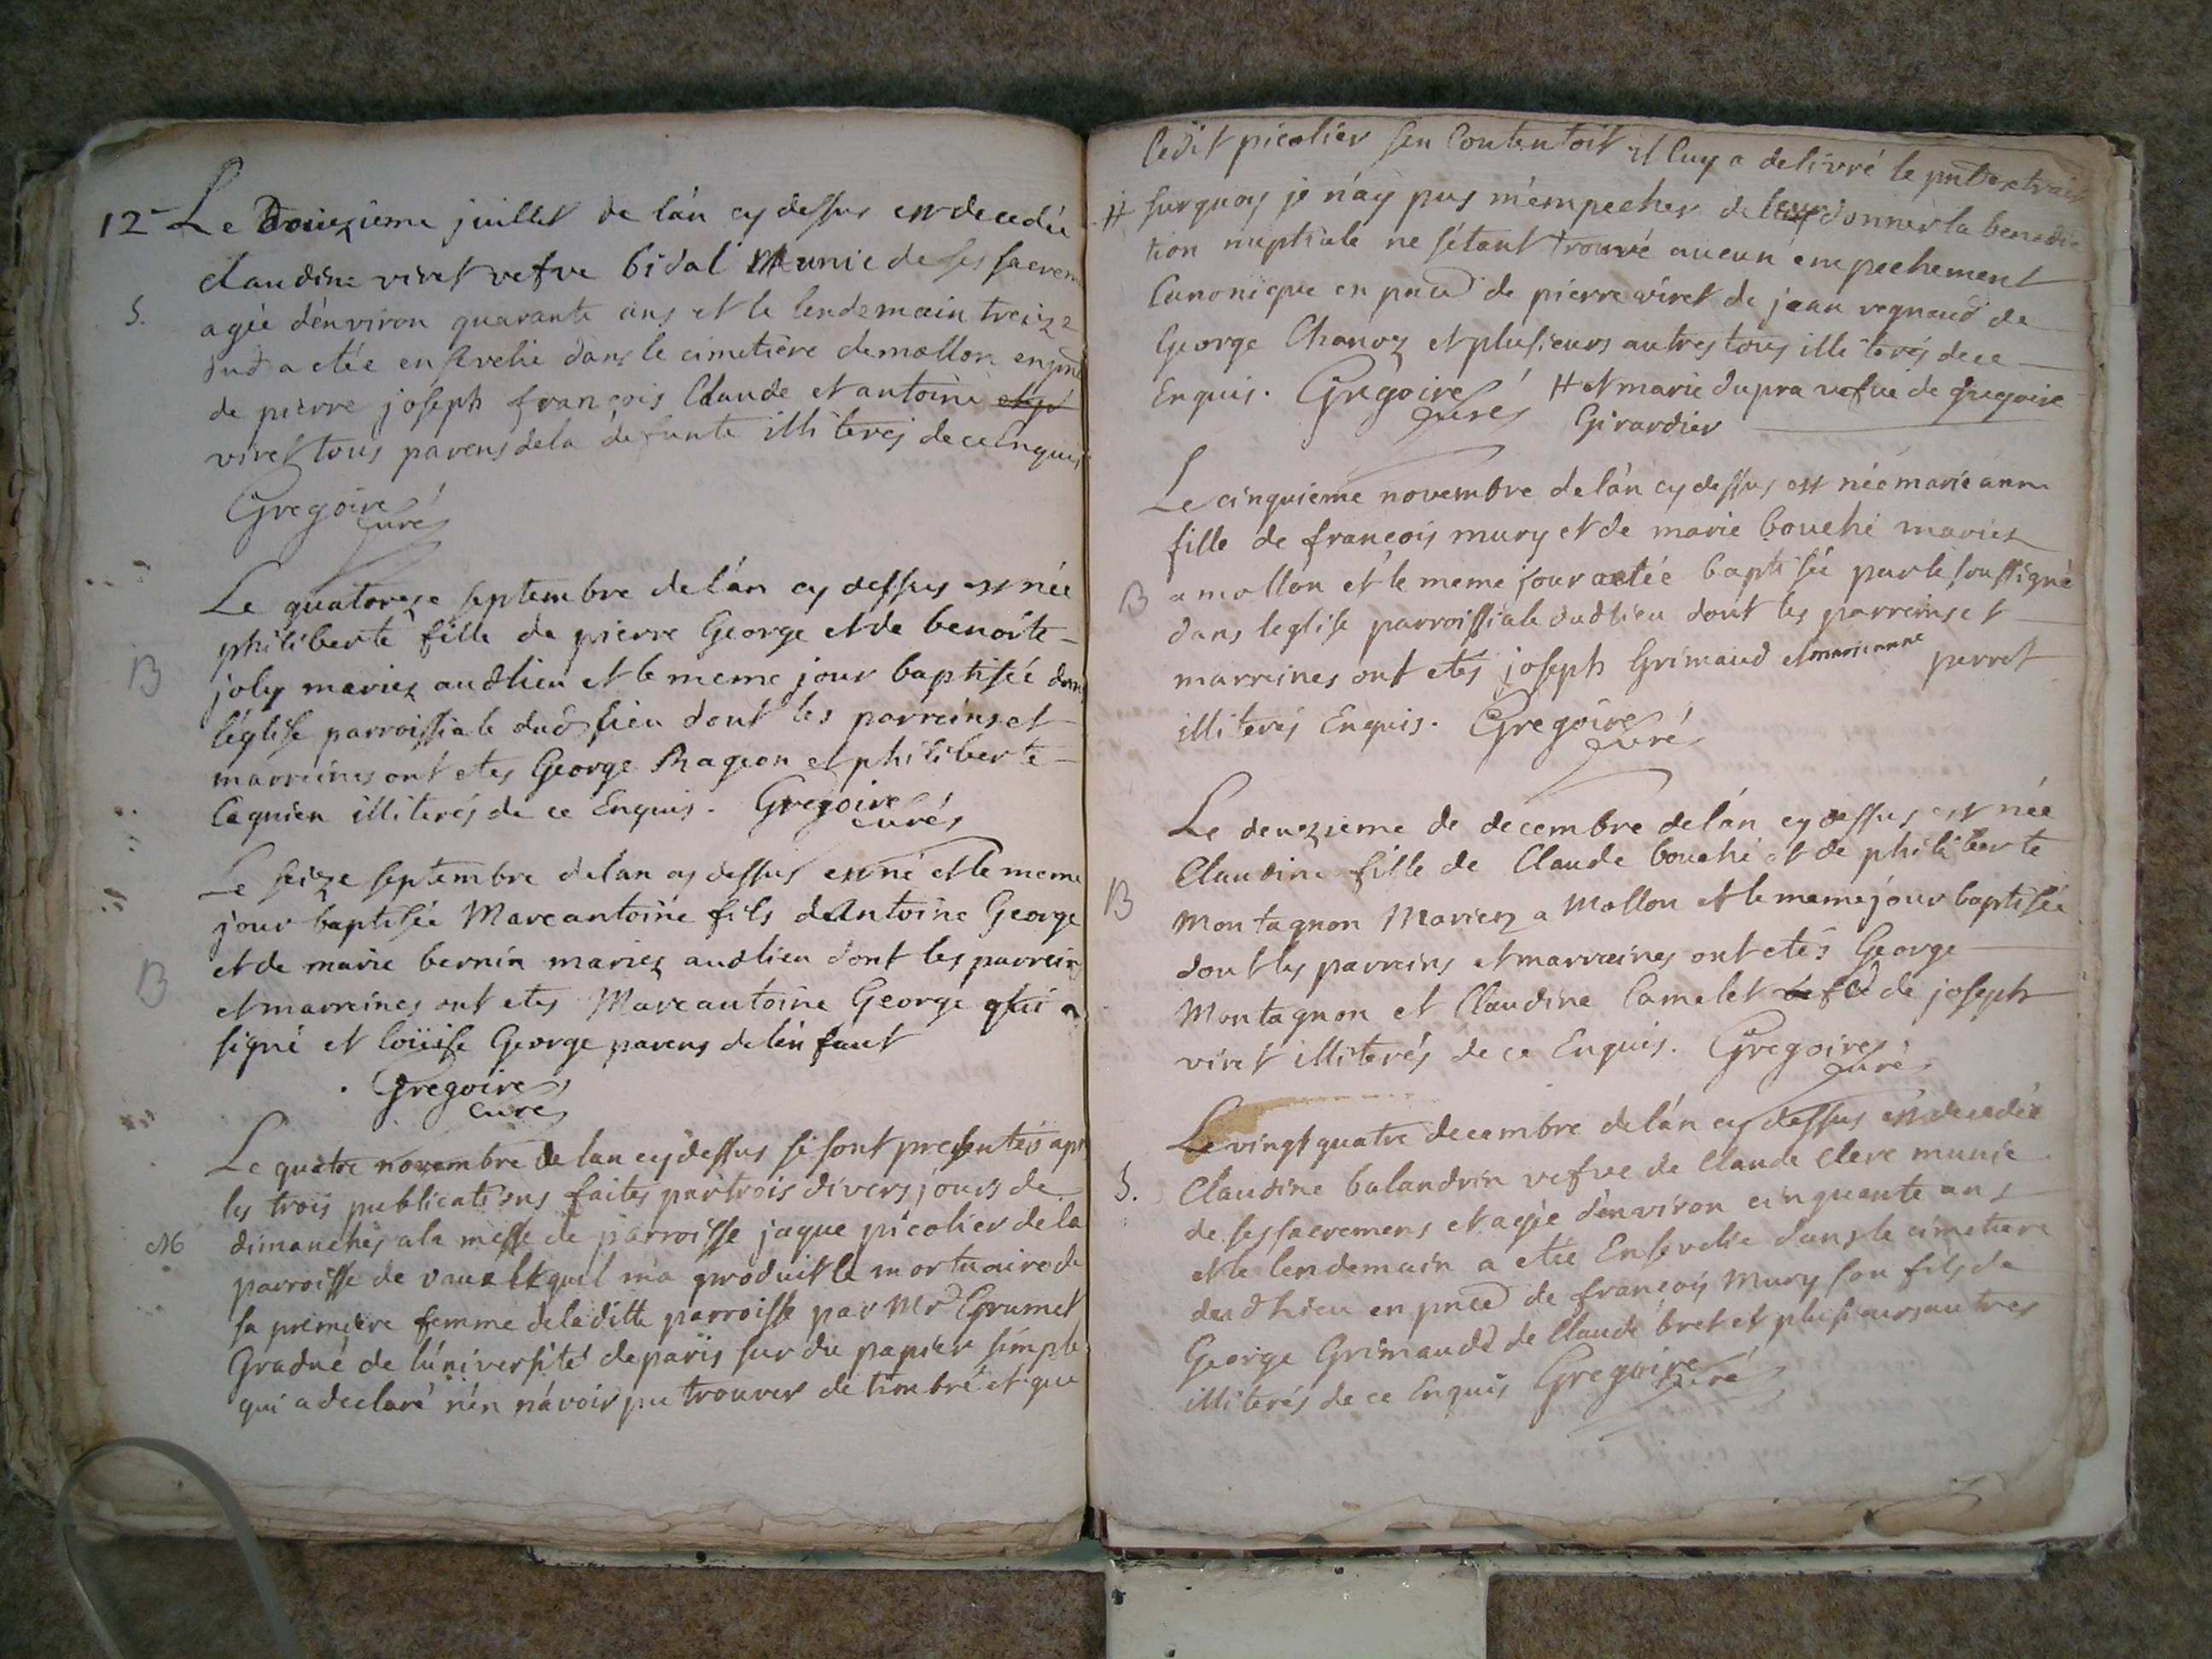 12 Le Douzieme juillet de l'án cy dessus est decedée
claudine viret vefve bidal Munie de ses sacrem
S. agée d'énviron quarante ans et le lendemain treize
dud a etée ensevelie dans le cimetière de mollon en pnce
de pierre joseph françois Claude et antoine
viret tous parens de la defunte illiterés de ce enquis
Gregoire curé
Le quatorze septembre de l'án cy dessus est née
philiberte fille de pierre George et de benoite
B joly mariez audlieu et le meme jour baptisée dans
l'église parroissiale dud lieu dont les parreins et
marreines ont etes George Rageon et philiberte
Cagnien illiterés de ce Enquis. Gregoire curé
Le seize septembre de lan cy dessus est né et le meme
jour baptisée Marcantoine fils dAntoine George
B et de marie bernin mariez audlieu dont les parreins
et marreines ont etes Marcantoine George qui a
signé et loüise George parens de l'én fant
Gregoire curé
Le quatre novembre de lan cy dessus se sont presentés apr
les trois publications faites par trois divers jours de
M dimanches a la messe de parroisse jaque picolier de la
parroisse de vaux lequel m'a produit le mortuaire de
sa premiere femme de la ditte parroisse par Mr Grumet
Gradué de lúniversité de paris sur du papier simple
qui a declaré n'én n'ávoir pu trouver de timbré et que
ledit picolier sen Contentoit il luy a delivré le pnt extrait
# surquoy je n'ay pus m'émpecher de leur donner la benedic
tion nuptiale ne s'étant trouvé aucun émpechement
Canonique en pnce de pierre viret de jean regnaud de
George Chanoz et plusieurs autres tous illiterés de ce
Enquis. Gregoire curé # et marie dupra vefve de gregoire
Girardier
Le cinquieme novembre de l'án cy dessus est née marie anne
fille de françois mury et de marie bouché mariez
B a mollon et le meme jour a etée baptisée par le soussigné
dans leglise parroissiale dudlieu dont les parreins et
marreines ont etés joseph Grimaud et marieanne perret
illiterés Enquis. Gregoire curé
Le deuzieme de decembre de l'án cy dessus est née
Claudine fille de Claude bouché et de philiberte
B Montagnon Mariez a Mollon et le meme jour baptisée
dont les parreins et marreines ont etés George
Montagnon et Claudine Camelet de joseph
viret illiterés de ce Enquis. Gregoire curé
Le vingt quatre decembre de l'án cy dessus est decedée
S. Claudine balandrin vefve de Claude Clerc munie
de ses sacremens et agée d'énviron cinquante ans
et le lendemain a etée Ensevelie dans le cimetiere
dudlieu en pnce de françois Mury son fils de
George Grimaud de Claude bret et plusieurs autres
illiterés de ce Enquis Gregoire curé